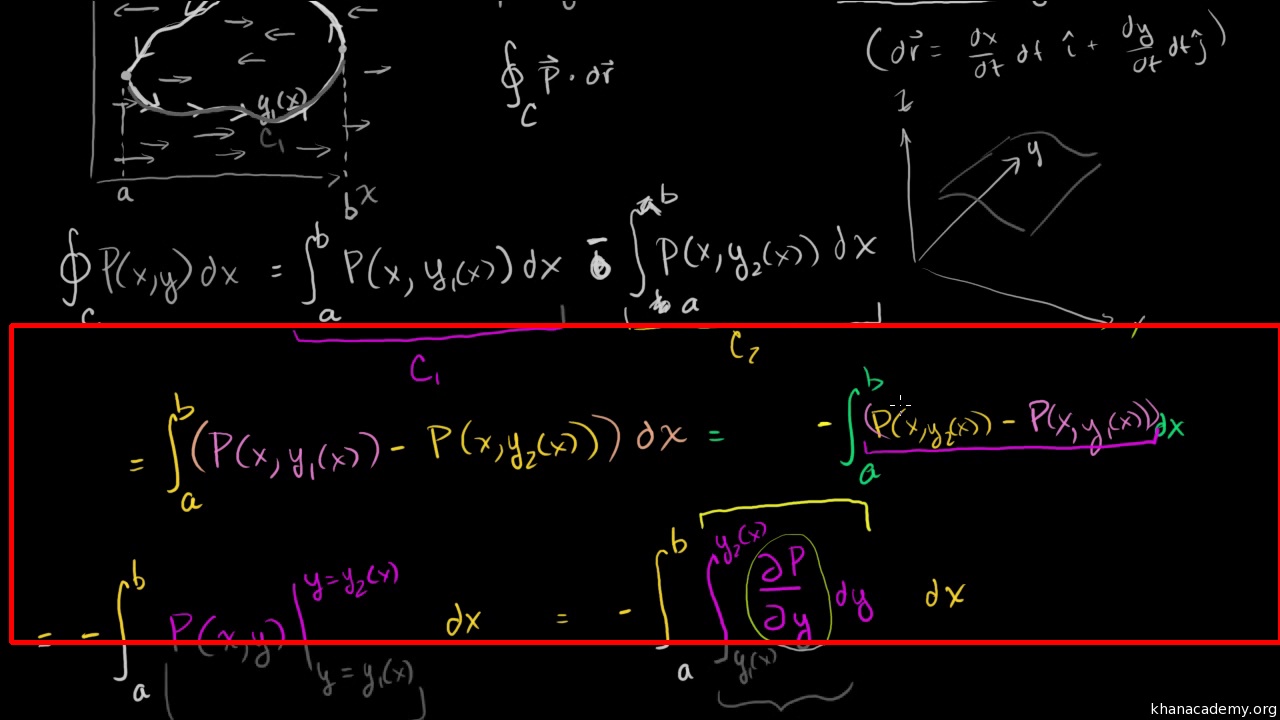 ∮_C P⃗ · dr⃗
(dr⃗ = dx/dt dt î + dy/dt dt ĵ)
z
y
y₁(x)
C₁
a
b x
∮_C P(x,y) dx = ∫_a^b P(x, y₁(x)) dx - ∫_a^b P(x, y₂(x)) dx
C₁
C₂
= ∫_a^b (P(x, y₁(x)) - P(x, y₂(x))) dx = - ∫_a^b (P(x, y₂(x)) - P(x, y₁(x))) dx
= - ∫_a^b P(x,y) |_{y = y₁(x)}^{y = y₂(x)} dx = - ∫_a^b ∫_{y₁(x)}^{y₂(x)} ∂P/∂y dy dx
khanacademy.org